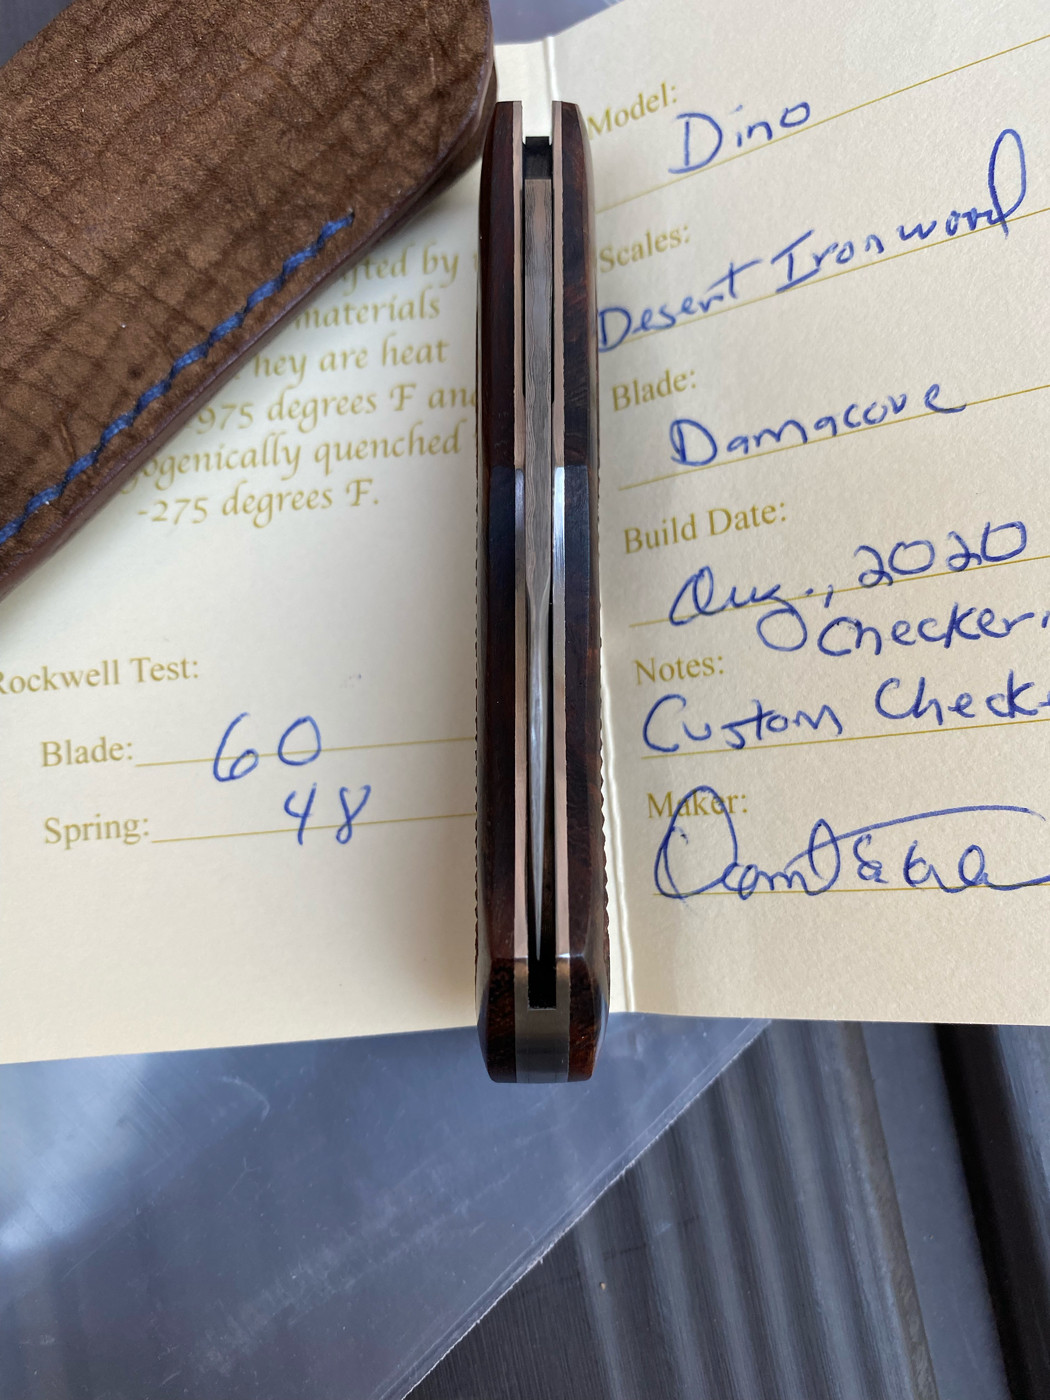 fted by
materials
They are heat
975 degrees F and
ogenically quenched
-275 degrees F.
Rockwell Test:
Blade: 60
Spring: 48
Model: Dino
Scales:
Desert Ironwood
Blade:
Damacore
Build Date:
Aug., 2020
Checker
Notes:
Custom Check
Maker: